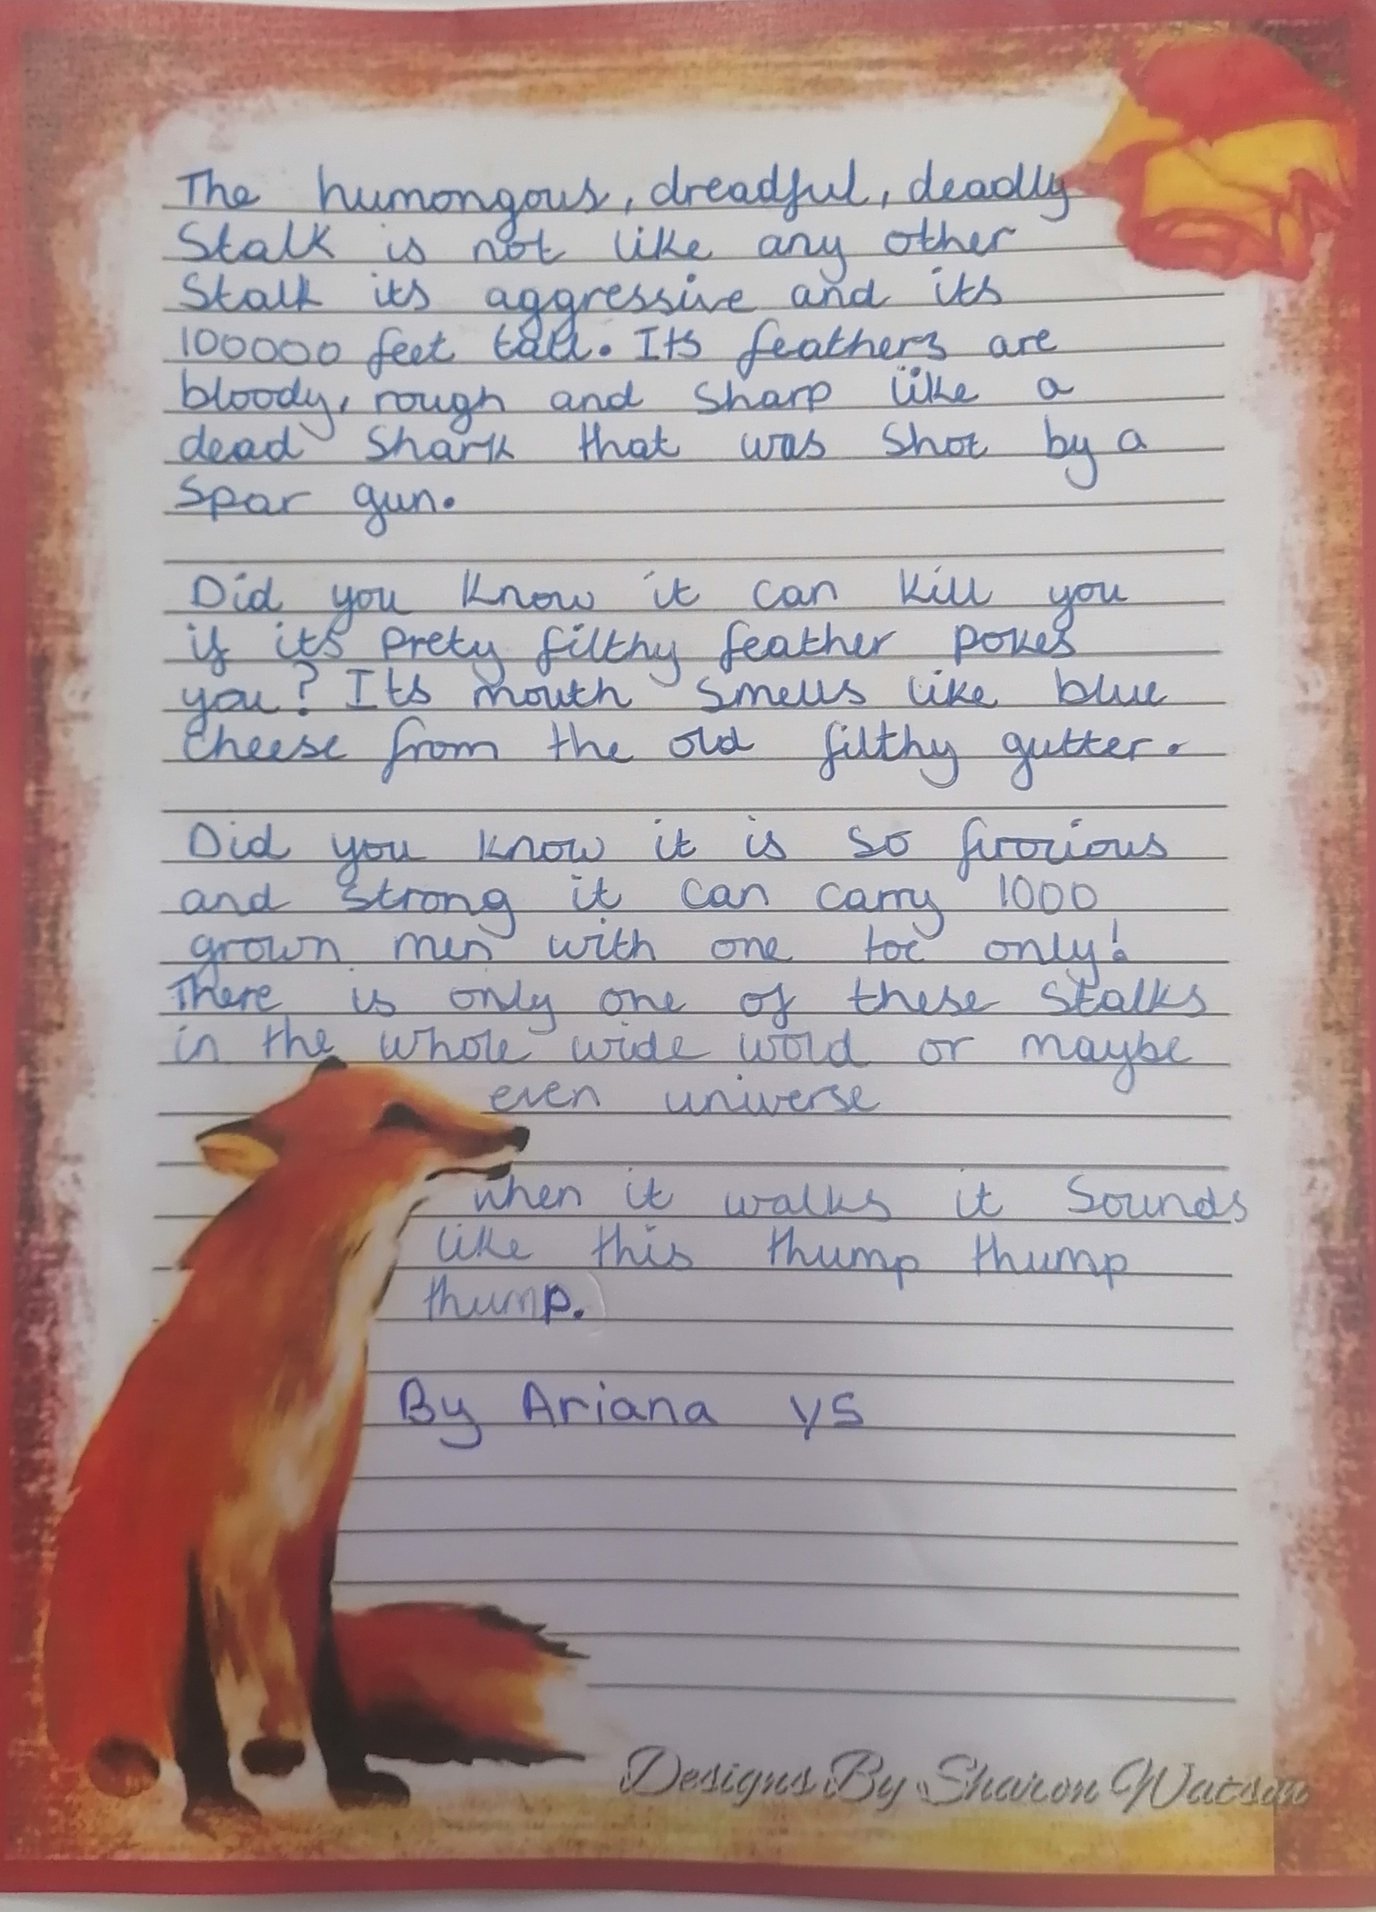 The humongous, dreadful, deadly
Stalk is not like any other
Stalk its aggressive and its
100000 feet tall. Its feathers are
bloody, rough and sharp like a
dead shark that was shot by a
spar gun.
Did you know it can kill you
if its prety filthy feather pokes
you? Its mouth smells like blue
cheese from the old filthy gutter.
Did you know it is so firocious
and strong it can carry 1000
grown men with one toe only!
There is only one of these stalks
in the whole wide world or maybe
even universe
when it walks it sounds
like this thump thump
thump.
By Ariana Y5
Designs By Sharon Watson